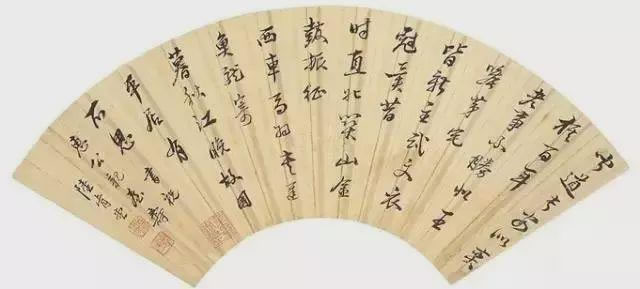 聞道長安似棊
百年
世事不勝悲王
侯第宅
皆新主武文衣
冠異昔
時直北關山金
鼓振征
西車馬羽書遲
魚龍寂
寞秋江晚故國
平居有
所思
書祝
公親翁壽
陸